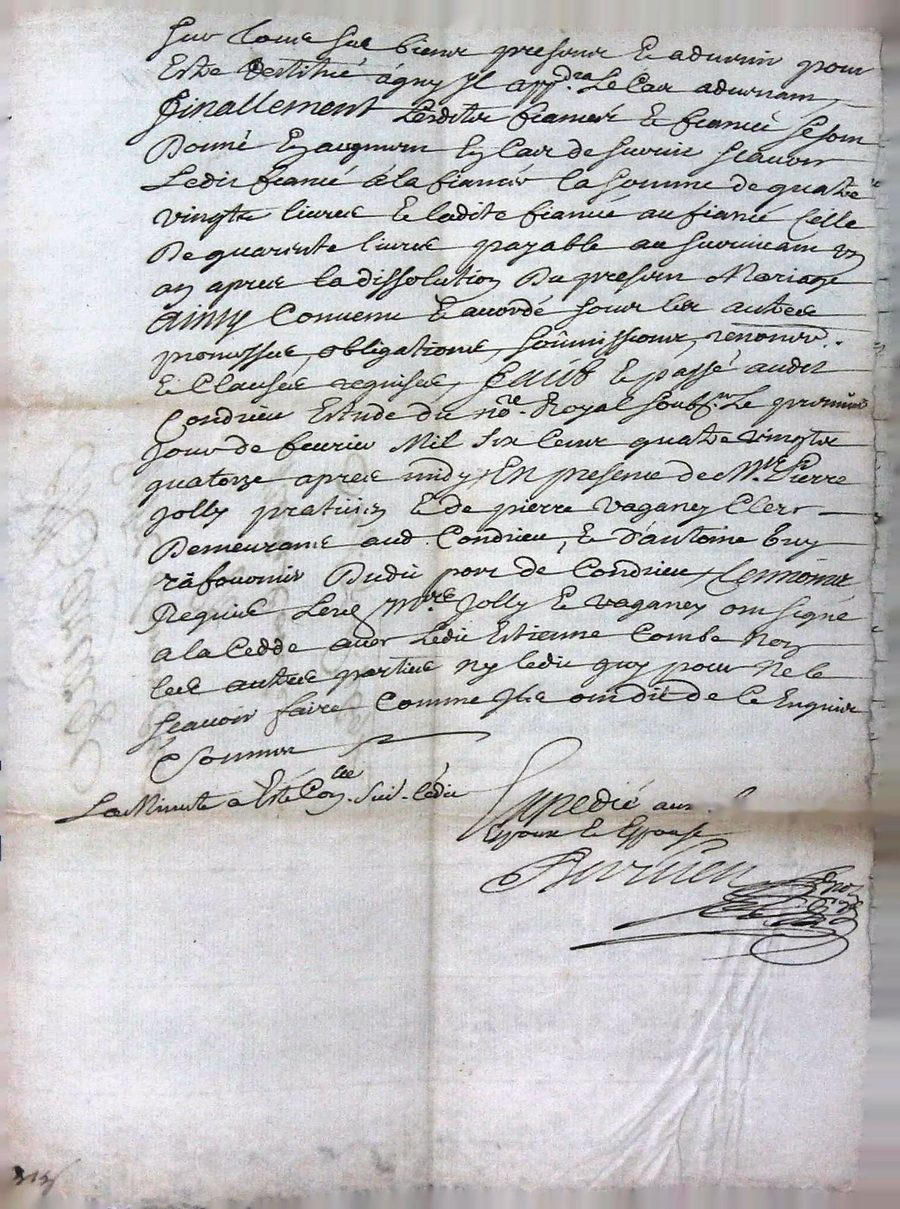 sur tous ses biens presens et advenir pour
estre restitué a quy Il app.dra Le Cas advenant
finallement Lesdits fiancés et fiancée se sont
Donné En augment En Cas de survie scavoir
Ledit fiancé a la fiancée la somme de quatre
vingts livres Et ladite fiancée au fiancé Celle
De quarente livres payable au survivant un
an apres la dissolution Du present Mariage
ainsy Convenu Et accordé sous les autres
promesses, obligations, soûmissions, renonc.
Et Clauses requises, faict Et passé audit
Condrieu Estude du no.re Royal soub.né Le premier
jour de fevrier Mil six Cens quatre vingts
quatorze apres midy En presence de M.re Pierre
Jolly praticien Et de pierre vaganey Clerc
Demeurans aud. Condrieu, Et d'antoine Guy
rafournir Dudit port de Condrieu tesmoins
Requis Lesd. M.re Jolly Et vaganey ont signé
a la Cedde avec Ledit Estienne Combe Non
les autres parties ny ledit Guy pour ne le
scavoir faire Comme Ils ont dit de Ce Enquis
Et sommés
La Minute a Esté Con.lée suiv. l'édit
Expedié aux
Espoux Et Espouse